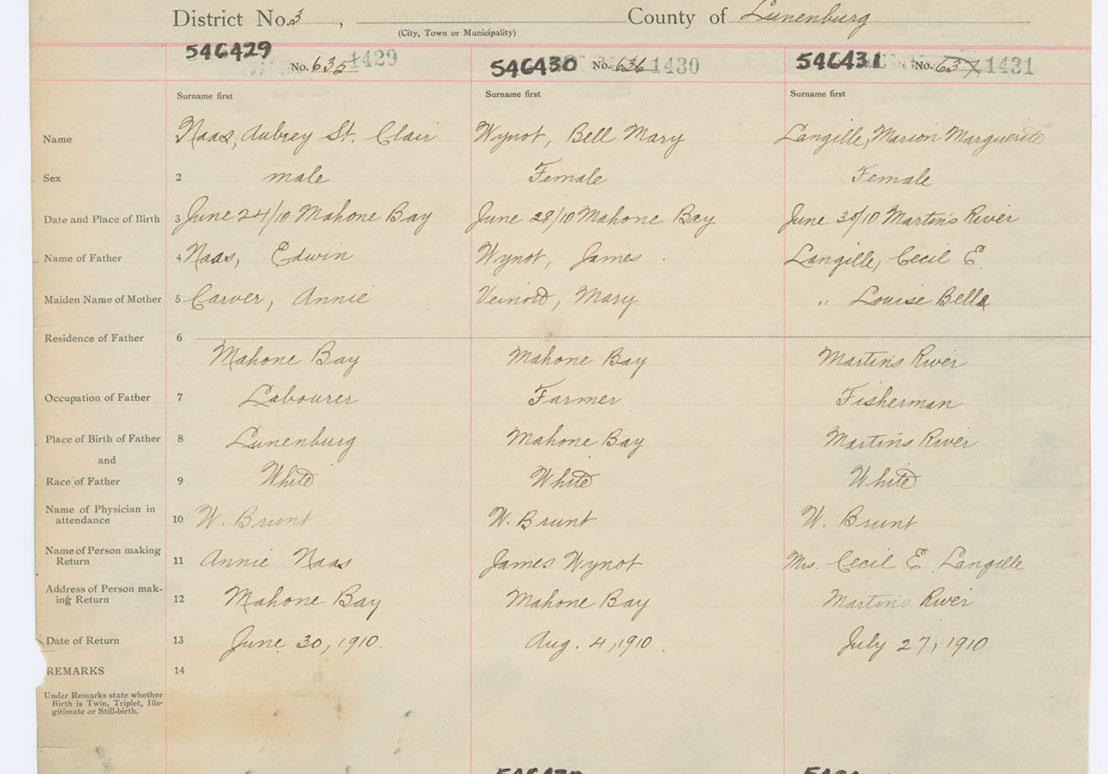 District No. 3 , County of Lunenburg
(City, Town or Municipality)
546429 No. 635 1429 546430 No. 636 1430 546431 No. 637 1431
Surname first Surname first Surname first
Name Naas, Aubrey St. Clair Wynot, Bell Mary Langille, Marion Marguerite
Sex 2 male Female Female
Date and Place of Birth 3 June 24/10 Mahone Bay June 28/10 Mahone Bay June 30/10 Martin's River
Name of Father 4 Naas, Edwin Wynot, James . Langille, Cecil E.
Maiden Name of Mother 5 Carver, Annie Veinotd, Mary " Louise Bella
Residence of Father 6
Mahone Bay Mahone Bay Martin's River
Occupation of Father 7 Labourer Farmer Fisherman
Place of Birth of Father 8 Lunenburg Mahone Bay Martin's River
and
Race of Father 9 White White White
Name of Physician in
attendance 10 W. Brunt W. Brunt W. Brunt
Name of Person making
Return 11 Annie Naas James Wynot Mrs. Cecil E. Langille
Address of Person mak-
ing Return 12 Mahone Bay Mahone Bay Martin's River
Date of Return 13 June 30, 1910. Aug. 4, 1910. July 27, 1910
REMARKS 14
Under Remarks state whether
Birth is Twin, Triplet, Ille-
gitimate or Still-birth.